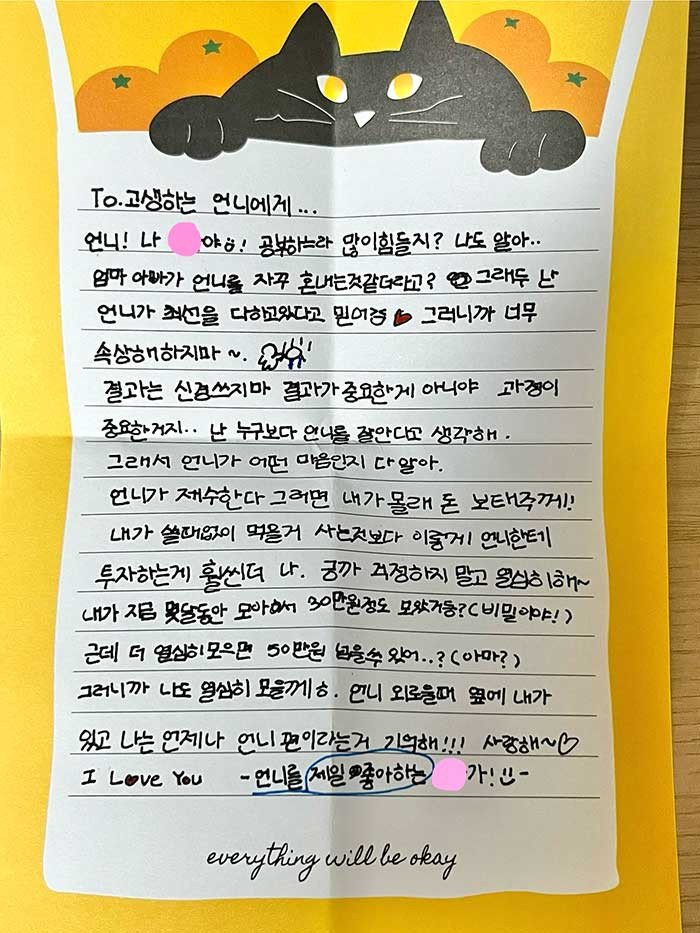 To.고생하는 언니에게...
언니! 나 야ㅎ! 공부하느라 많이힘들지? 나도 알아..
엄마 아빠가 언니를 자꾸 혼내는것같더라고? 그래두 난
언니가 최선을 다하고있다고 믿어경 ♥ 그러니까 너무
속상해하지마 ~.
결과는 신경쓰지마 결과가 중요한게 아니야 과정이
중요한거지.. 난 누구보다 언니를 잘안다고 생각해.
그래서 언니가 어떤 마음인지 다 알아.
언니가 재수한다 그러면 내가 몰래 돈 보태주께!
내가 쓸때없이 먹을거 사는것보다 이렇게 언니한테
투자하는게 훨씬더 나. 긍까 걱정하지 말고 열심히해~
내가 지금 몇달동안 모아서 30만원정도 모았거등?(비밀이야!)
근데 더 열심히모으면 50만원 넘을수 있어..?(아마?)
그러니까 나도 열심히 모을께ㅎ. 언니 외로울때 옆에 내가
있고 나는 언제나 언니 편이라는거 기억해!!! 사랑해~♡
I Love You -언니를 제일 좋아하는 가!-
everything will be okay